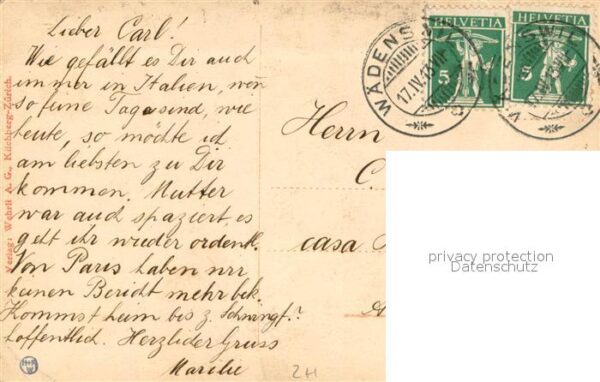 Lieber Carl!
Wie gefällt es Dir auch
immer in Italien, wen
so feine Tage sind, wie
heute, so möchte ich
am liebsten zu Dir
kommen. Mutter
war auch spaziert, es
geht ihr wieder ordentl.
Von Paris haben wir
keinen Bericht mehr bek.
Kommst heim bis z.
hoffentlich. Herzlicher Gruss
Verlag: Wehrli A. G., Kilchberg-Zürich.
HELVETIA
5
HELVETIA
5
WÄDENSWIL
17.IV.
Herrn
C.
casa
privacy protection
Datenschutz